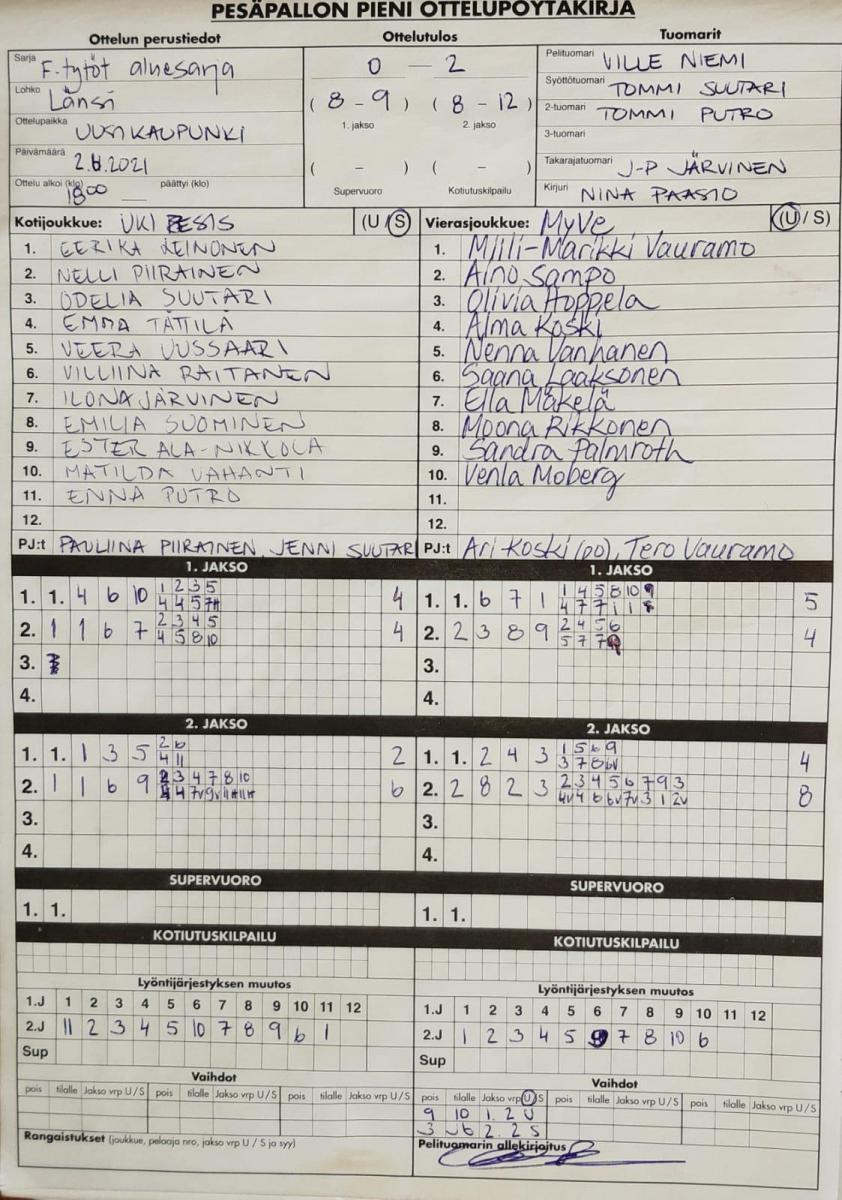 PESÄPALLON PIENI OTTELUPÖYTÄKIRJA
Ottelun perustiedot
Sarja F-tytöt aluesarja
Lohko Länsi
Ottelupaikka UUSIKAUPUNKI
Päivämäärä 2.6.2021
Ottelu alkoi (klo) 1800 päättyi (klo)
Ottelutulos
0 - 2
(8 - 9) (8 - 12)
1. jakso 2. jakso
( - ) ( - )
Supervuoro Kotiutuskilpailu
Tuomarit
Pelituomari VILLE NIEMI
Syöttötuomari TOMMI SUUTARI
2-tuomari TOMMI PUTRO
3-tuomari
Takarajatuomari J-P JÄRVINEN
Kirjuri NINA PAASIO
Kotijoukkue: UKI PESIS (U/S)
1. EERIKA LEINONEN
2. NELLI PIIRAINEN
3. ODELIA SUUTARI
4. EMMA TÄTTILÄ
5. VEERA UUSSAARI
6. VILLIINA RAITANEN
7. ILONA JÄRVINEN
8. EMILIA SUOMINEN
9. ESTER ALA-NIKKOLA
10. MATILDA VAHANTI
11. ENNA PUTRO
12.
PJ:t PAULIINA PIIRAINEN, JENNI SUUTARI
Vierasjoukkue: MyVe (U/S)
1. Miili-Marikki Vauramo
2. Aino Sampo
3. Olivia Hoppela
4. Alma Koski
5. Nenna Vanhanen
6. Saana Laaksonen
7. Ella Mäkelä
8. Moona Rikkonen
9. Sandra Palmroth
10. Venla Moberg
11.
12.
PJ:t Ari Koski (po), Tero Vauramo
1. JAKSO
1. 1. 4 6 10 1 2 3 5 4
4 4 5
2. 1 1 6 7 2 3 4 5 4
4 5 8 10
3.
4.
1. JAKSO
1. 1. 6 7 1 1 4 5 8 10 5
4 7 7 1 1
2. 2 3 8 9 2 4 5 6 4
5 7 7
3.
4.
2. JAKSO
1. 1. 1 3 5 2 6 2
4 11
2. 1 1 6 9 2 3 4 7 8 10 6
3.
4.
2. JAKSO
1. 1. 2 4 3 1 5 6 9 4
3 7 8 6v
2. 2 8 2 3 2 3 4 5 6 7 9 3 8
4v 4 6 6v 7v 3 1 2v
3.
4.
SUPERVUORO
1. 1.
SUPERVUORO
1. 1.
KOTIUTUSKILPAILU
KOTIUTUSKILPAILU
Lyöntijärjestyksen muutos
1.J 1 2 3 4 5 6 7 8 9 10 11 12
2.J 11 2 3 4 5 10 7 8 9 6 1
Sup
Lyöntijärjestyksen muutos
1.J 1 2 3 4 5 6 7 8 9 10 11 12
2.J 1 2 3 4 5 9 7 8 10 6
Sup
Vaihdot
pois tilalle Jakso vrp U/S pois tilalle Jakso vrp U/S pois tilalle Jakso vrp U/S
Rangaistukset (joukkue, pelaaja nro, jakso vrp U / S ja syy)
Vaihdot
pois tilalle Jakso vrp U/S pois tilalle Jakso vrp U/S pois tilalle Jakso vrp U/S
9 10 1. 2 U
3 Jb 2. 2 S
Pelituomarin allekirjoitus